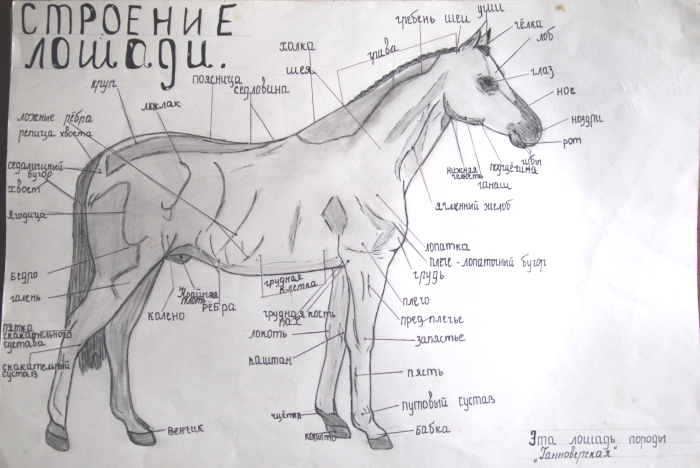 СТРОЕНИЕ
ЛОШАДИ.
гребень шеи
уши
чёлка
лоб
глаз
нос
ноздри
рот
холка
грива
шея
поясница
седловина
круп
маклак
ложные рёбра
репица хвоста
седалищный
бугор
хвост
ягодица
бедро
голень
пятка
скакательного
сустава
скакательный
сустав
венчик
колено
крайняя
плоть
рёбра
грудная
клетка
грудная кость
пах
локоть
каштан
щётка
копыто
нижняя
челюсть
ганаш
подщечина
яремный желоб
лопатка
плече-лопаточный бугор
грудь
плечо
пред-плечье
запястье
пясть
путовый сустав
бабка
Эта лошадь породы
"Ганноверская"